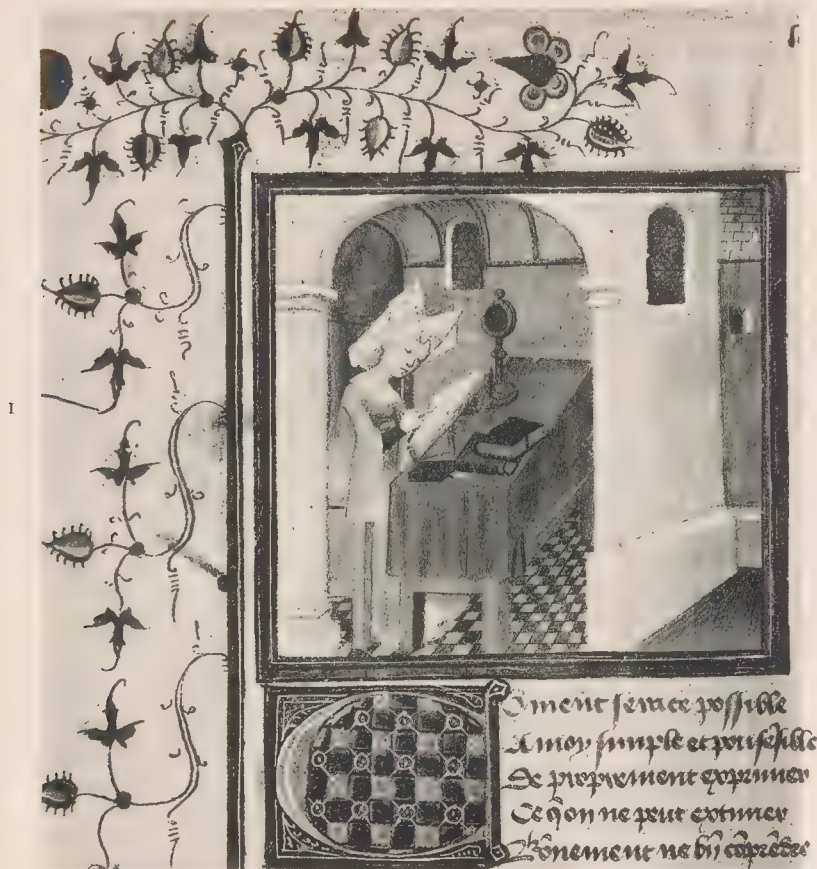 I
Cment seroit possible
A moy simple et pou sensible
De proprement exprimer
Ce qon ne peut extimer
Bonnement ne bn coprendre